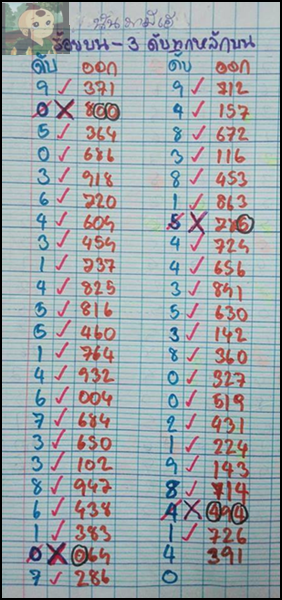 นั้นมามีเฮ
ร้อยบน - 3 ดับทุกหลักบน
ดับ ออก ดับ ออก
9 ✓ 371 9 ✓ 712
0 ✗ 800 4 ✓ 157
5 ✓ 364 8 ✓ 672
0 ✓ 686 3 ✓ 116
3 ✓ 918 8 ✓ 453
6 ✓ 720 1 ✓ 863
4 ✓ 609 5 ✗ 785
3 ✓ 459 4 ✓ 729
1 ✓ 237 4 ✓ 656
4 ✓ 825 3 ✓ 891
5 ✓ 816 5 ✓ 630
5 ✓ 460 3 ✓ 142
1 ✓ 764 8 ✓ 360
4 ✓ 932 0 ✓ 327
6 ✓ 004 0 ✓ 519
7 ✓ 684 2 ✓ 931
3 ✓ 650 1 ✓ 224
3 ✓ 102 9 ✓ 143
8 ✓ 947 8 ✓ 714
6 ✓ 438 4 ✗ 494
1 ✓ 383 1 ✓ 726
0 ✗ 064 4 391
7 ✓ 286 0